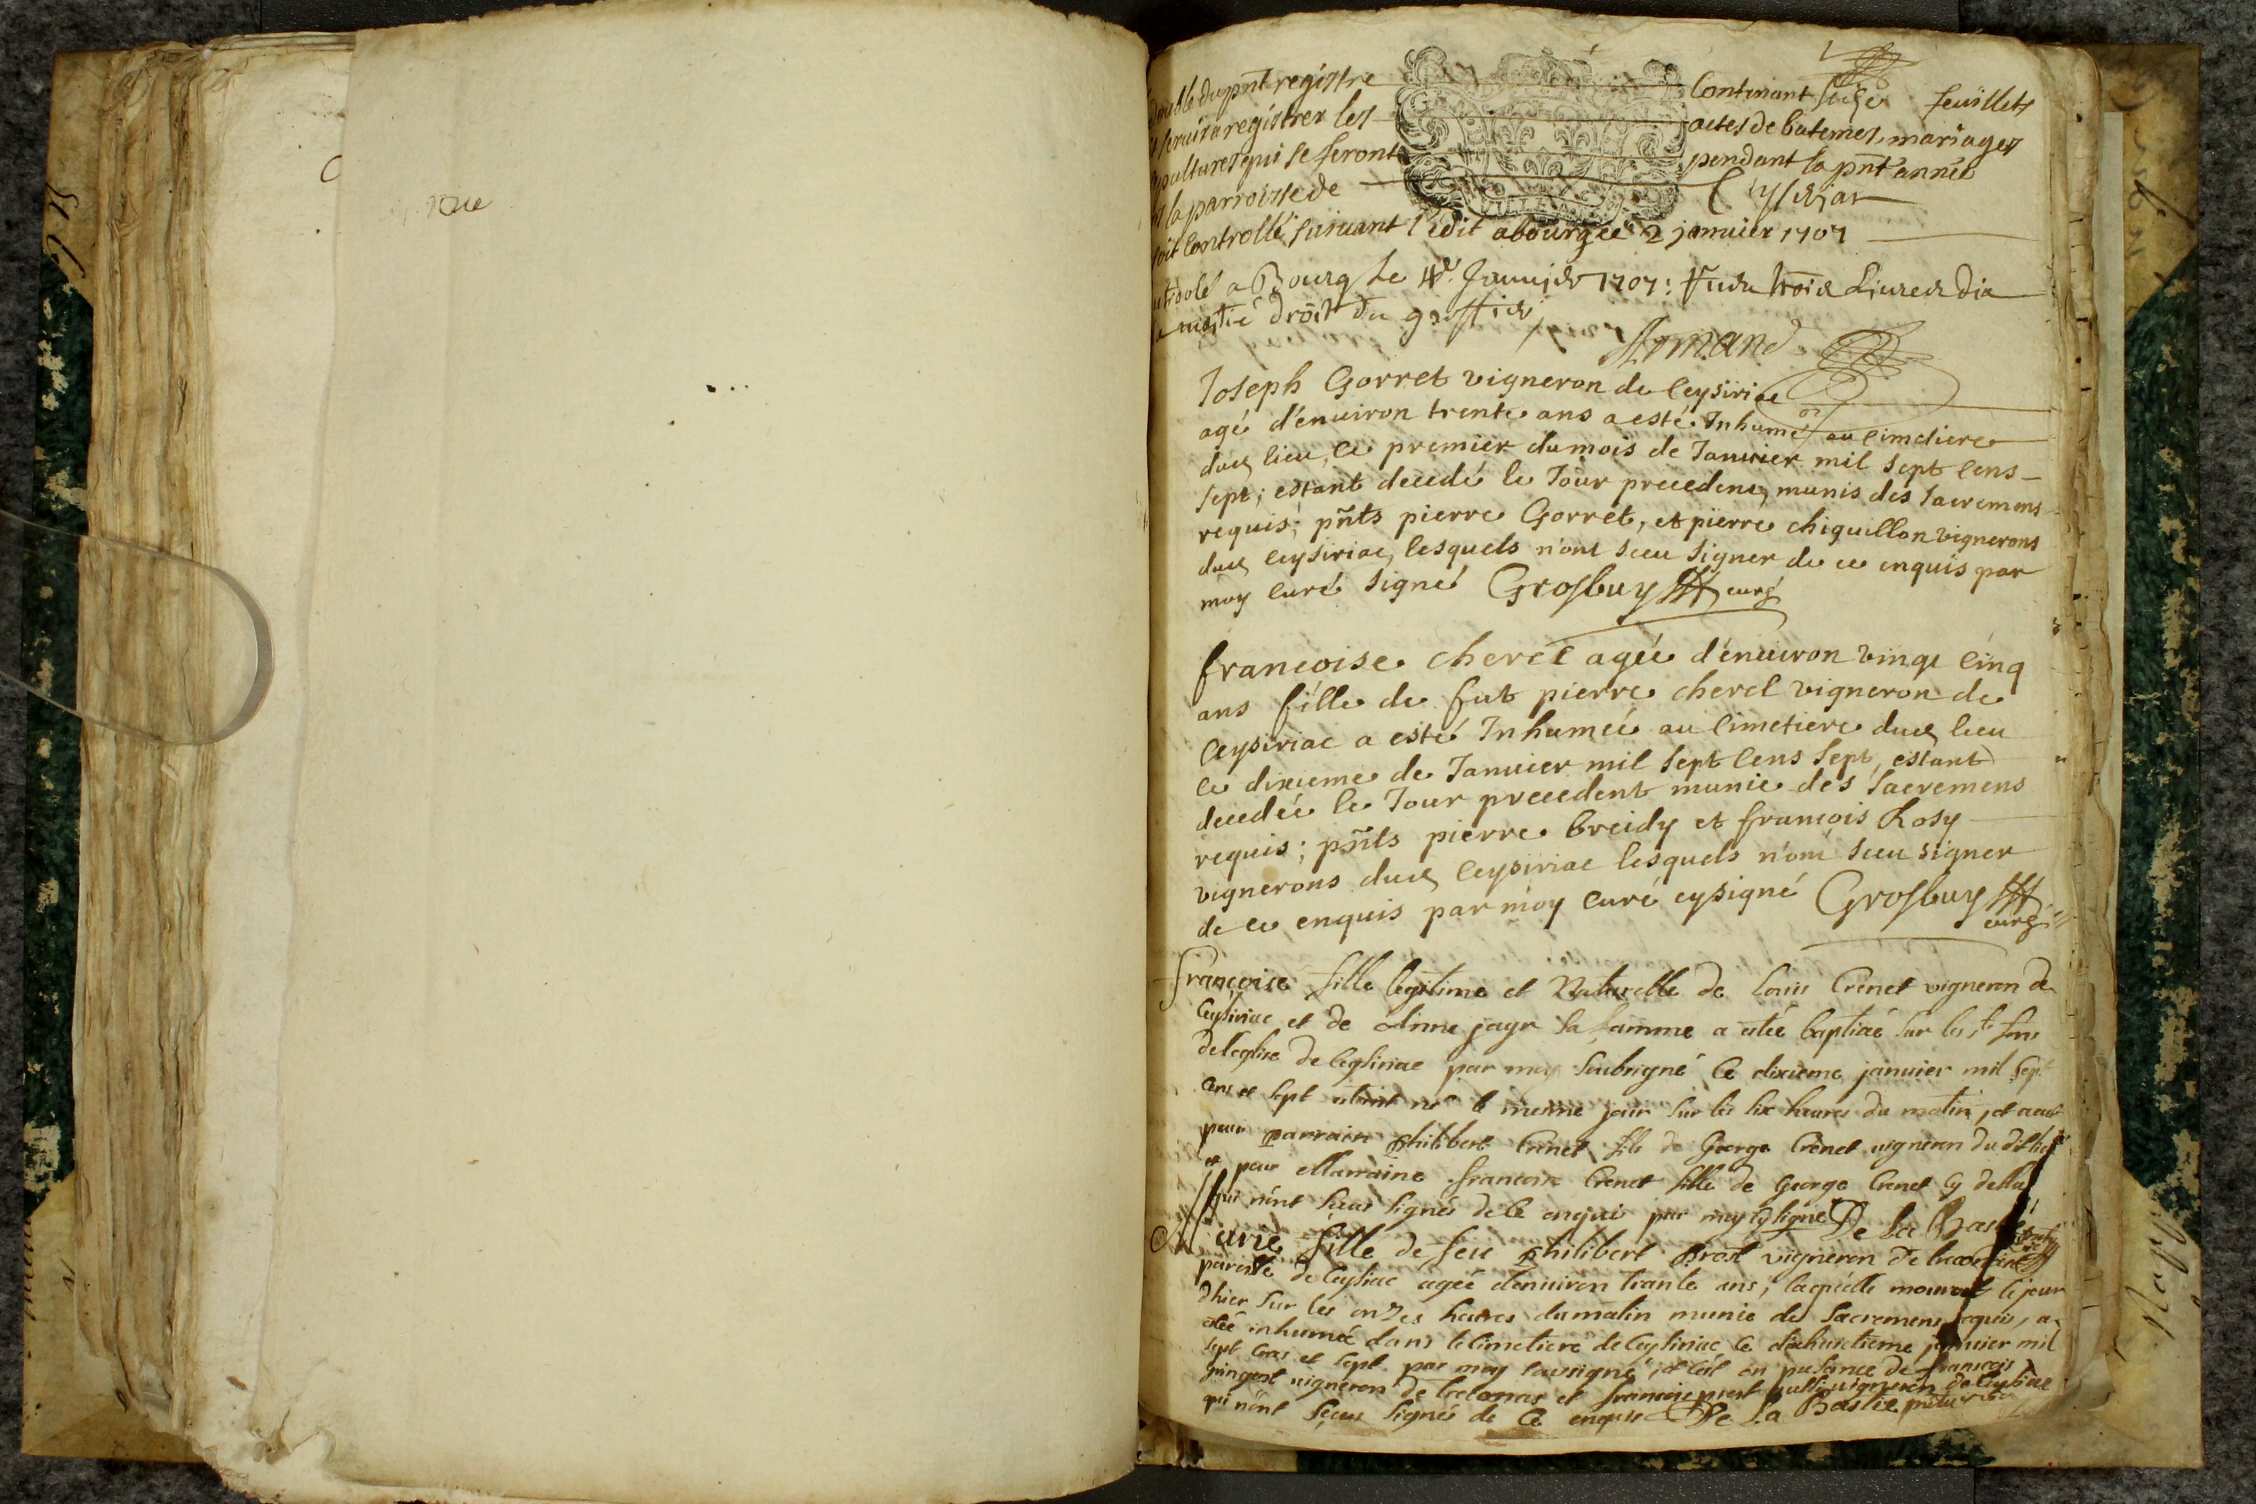 double du pnt registre Continant seize feüillets
servira registrer les actes de batemes, mariages
sepultures qui se feront pendant la pnt année
la parroisse de Ceyseriat
soit controllé suivant l'édit a bourg ce 2 janvier 1707
a Bourg le Janvier 1707: trois Livres dix
moitié droit du greffier
Armand
Joseph Gorret vigneron de Ceysiriac
agé d'enuiron trente ans a esté Inhumé au cimetiere
dud lieu, ce premier du mois de Januier mil sept cens
sept; estant decedé le Jour precedent, munis des sacremens
requis; pñts pierre Gorret, et pierre chiquillon vignerons
dud ceysiriac, lesquels n'ont sceu signer de ce enquis par
moy curé signé Grosbuy curé
francoise cherel agée d'enuiron vingt cinq
ans fille de fut pierre cherel vigneron de
Ceysiriac a esté Inhumée au cimetiere dud lieu
ce dixieme de Januier mil sept cens sept, estant
decedée le Jour precedent munie des sacremens
requis; pñts pierre breidy et francois Rosy
vignerons dud Ceysiriac lesquels n'ont sceu signer
de ce enquis par moy curé cysigné Grosbuy
curé
françoise fille legitime et Naturelle de Louis Crenet vigneron de
Ceysiriac et de jayr sa famme a etée baptisé sur les st fons
de leglise de Ceysiriac par moy soubsigné ce dixieme januier mil sept
cens et sept né le meme jour sur les six heures du matin, et a eu
pour parrain philibert Crenet fils de George Crenet uigneron du dit lieu
et pour Marraine francoise Crenet fille de George Crenet
qui n'ont sceus signés de ce enquis par moy sy signé De la Bastie
Marie fille de feu philibert prost vigneron de
paroisse de agée denuiron trante ans, laquelle mourut le jour
dhier sur les onzes heures du matin munie des sacremens requis, a
etée inhumée dans le cimetiere de Ceysiriac ce dixhuictieme januier mil
sept cens et sept par moy sousigné, et en presance de francois
uigneron de et francois uigneron de Ceysiriac
qui n'ont sceus signés de ce enquis De la Bastie